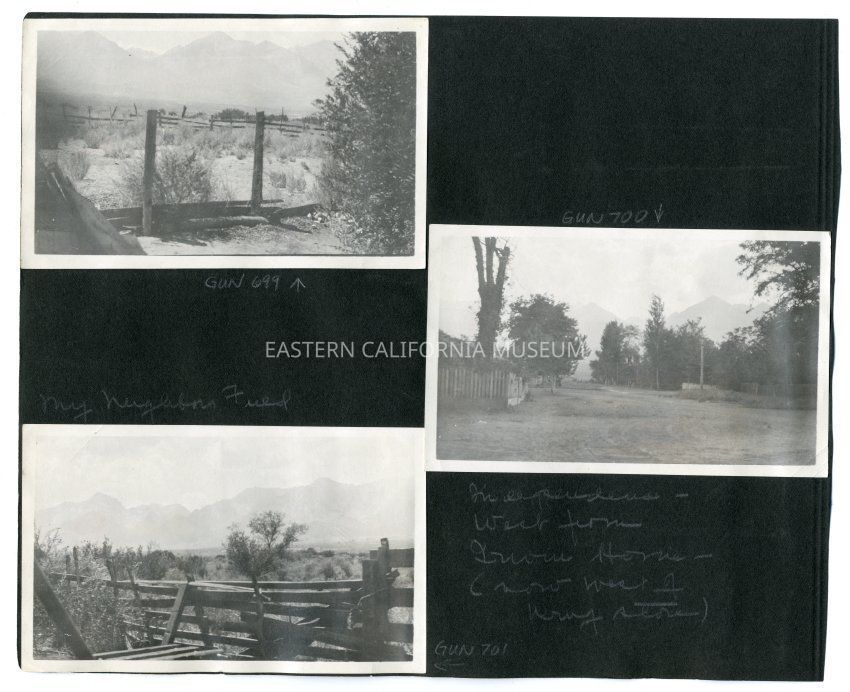 GUN 700 ↓
GUN 699 ↑
EASTERN CALIFORNIA MUSEUM
My Neighbors Field
Independence -
West from
Home -
(now west of
store)
GUN 701
←